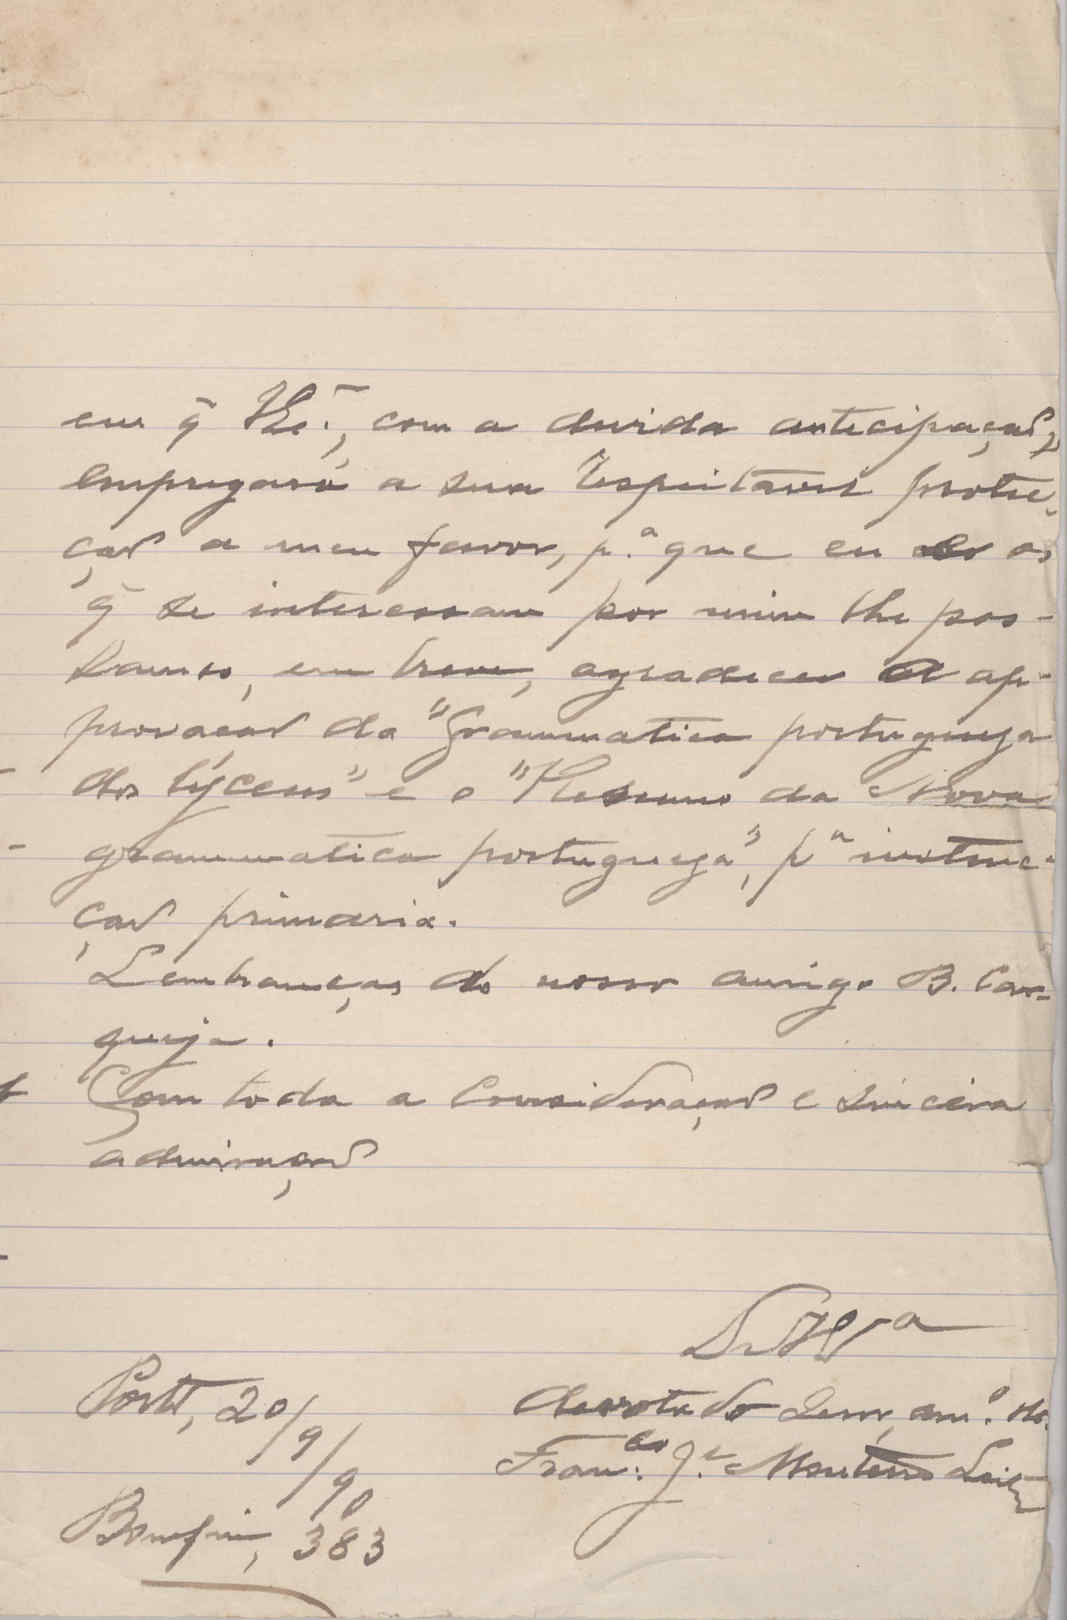 em q̃ V. Ex.ª, com a devida antecipação,
empregará a sua respeitavel protec-
ção a meu favor, p.ª que eu e os
q̃ se interessam por mim lhe pos-
samos, em breve, agradecer a ap-
provação da "Grammatica portugueza
dos lyceus" e o "Resumo da Nova
grammatica portugueza", p.ª instruc-
ção primaria.
Lembranças do nosso amigo B. Car-
queja.
Com toda a consideração e sincera
admiração
De V. Ex.ª
Porto, 20/9/90
devotado Serv, am.º
Fran.co J.e Monteiro Leite
Bomfim, 383